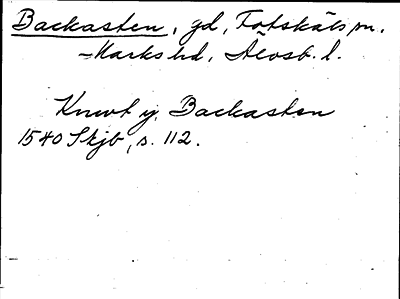 Backasten, gd, Fotskäls sn.
Marks hd, Älvsb. l.
Knwt y Backasten
1540 Skjb, s. 112.